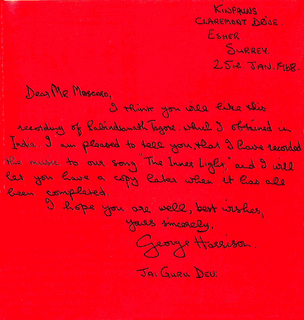 KINFAUNS
CLAREMONT DRIVE.
ESHER
SURREY.
25th JAN. 1968.
Dear Mr Mascaró,
I think you will like this
recording of Rabindranath Tagore. which I obtained in
India. I am pleased to tell you that I have recorded
the music to our song "The Inner Light" and I will
let you have a copy later when it has all
been completed.
I hope you are well, best wishes,
yours sincerely,
George Harrison.
JAI GURU DEV.